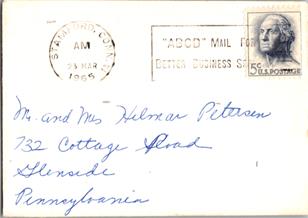 STAMFORD, CONN.
AM
23 MAR
1965
"ABCD" MAIL FOR
BETTER BUSINESS
5c U.S. POSTAGE
Mr. and Mrs Hilmar Petersen
732 Cottage Road
Glenside
Pennsylvania